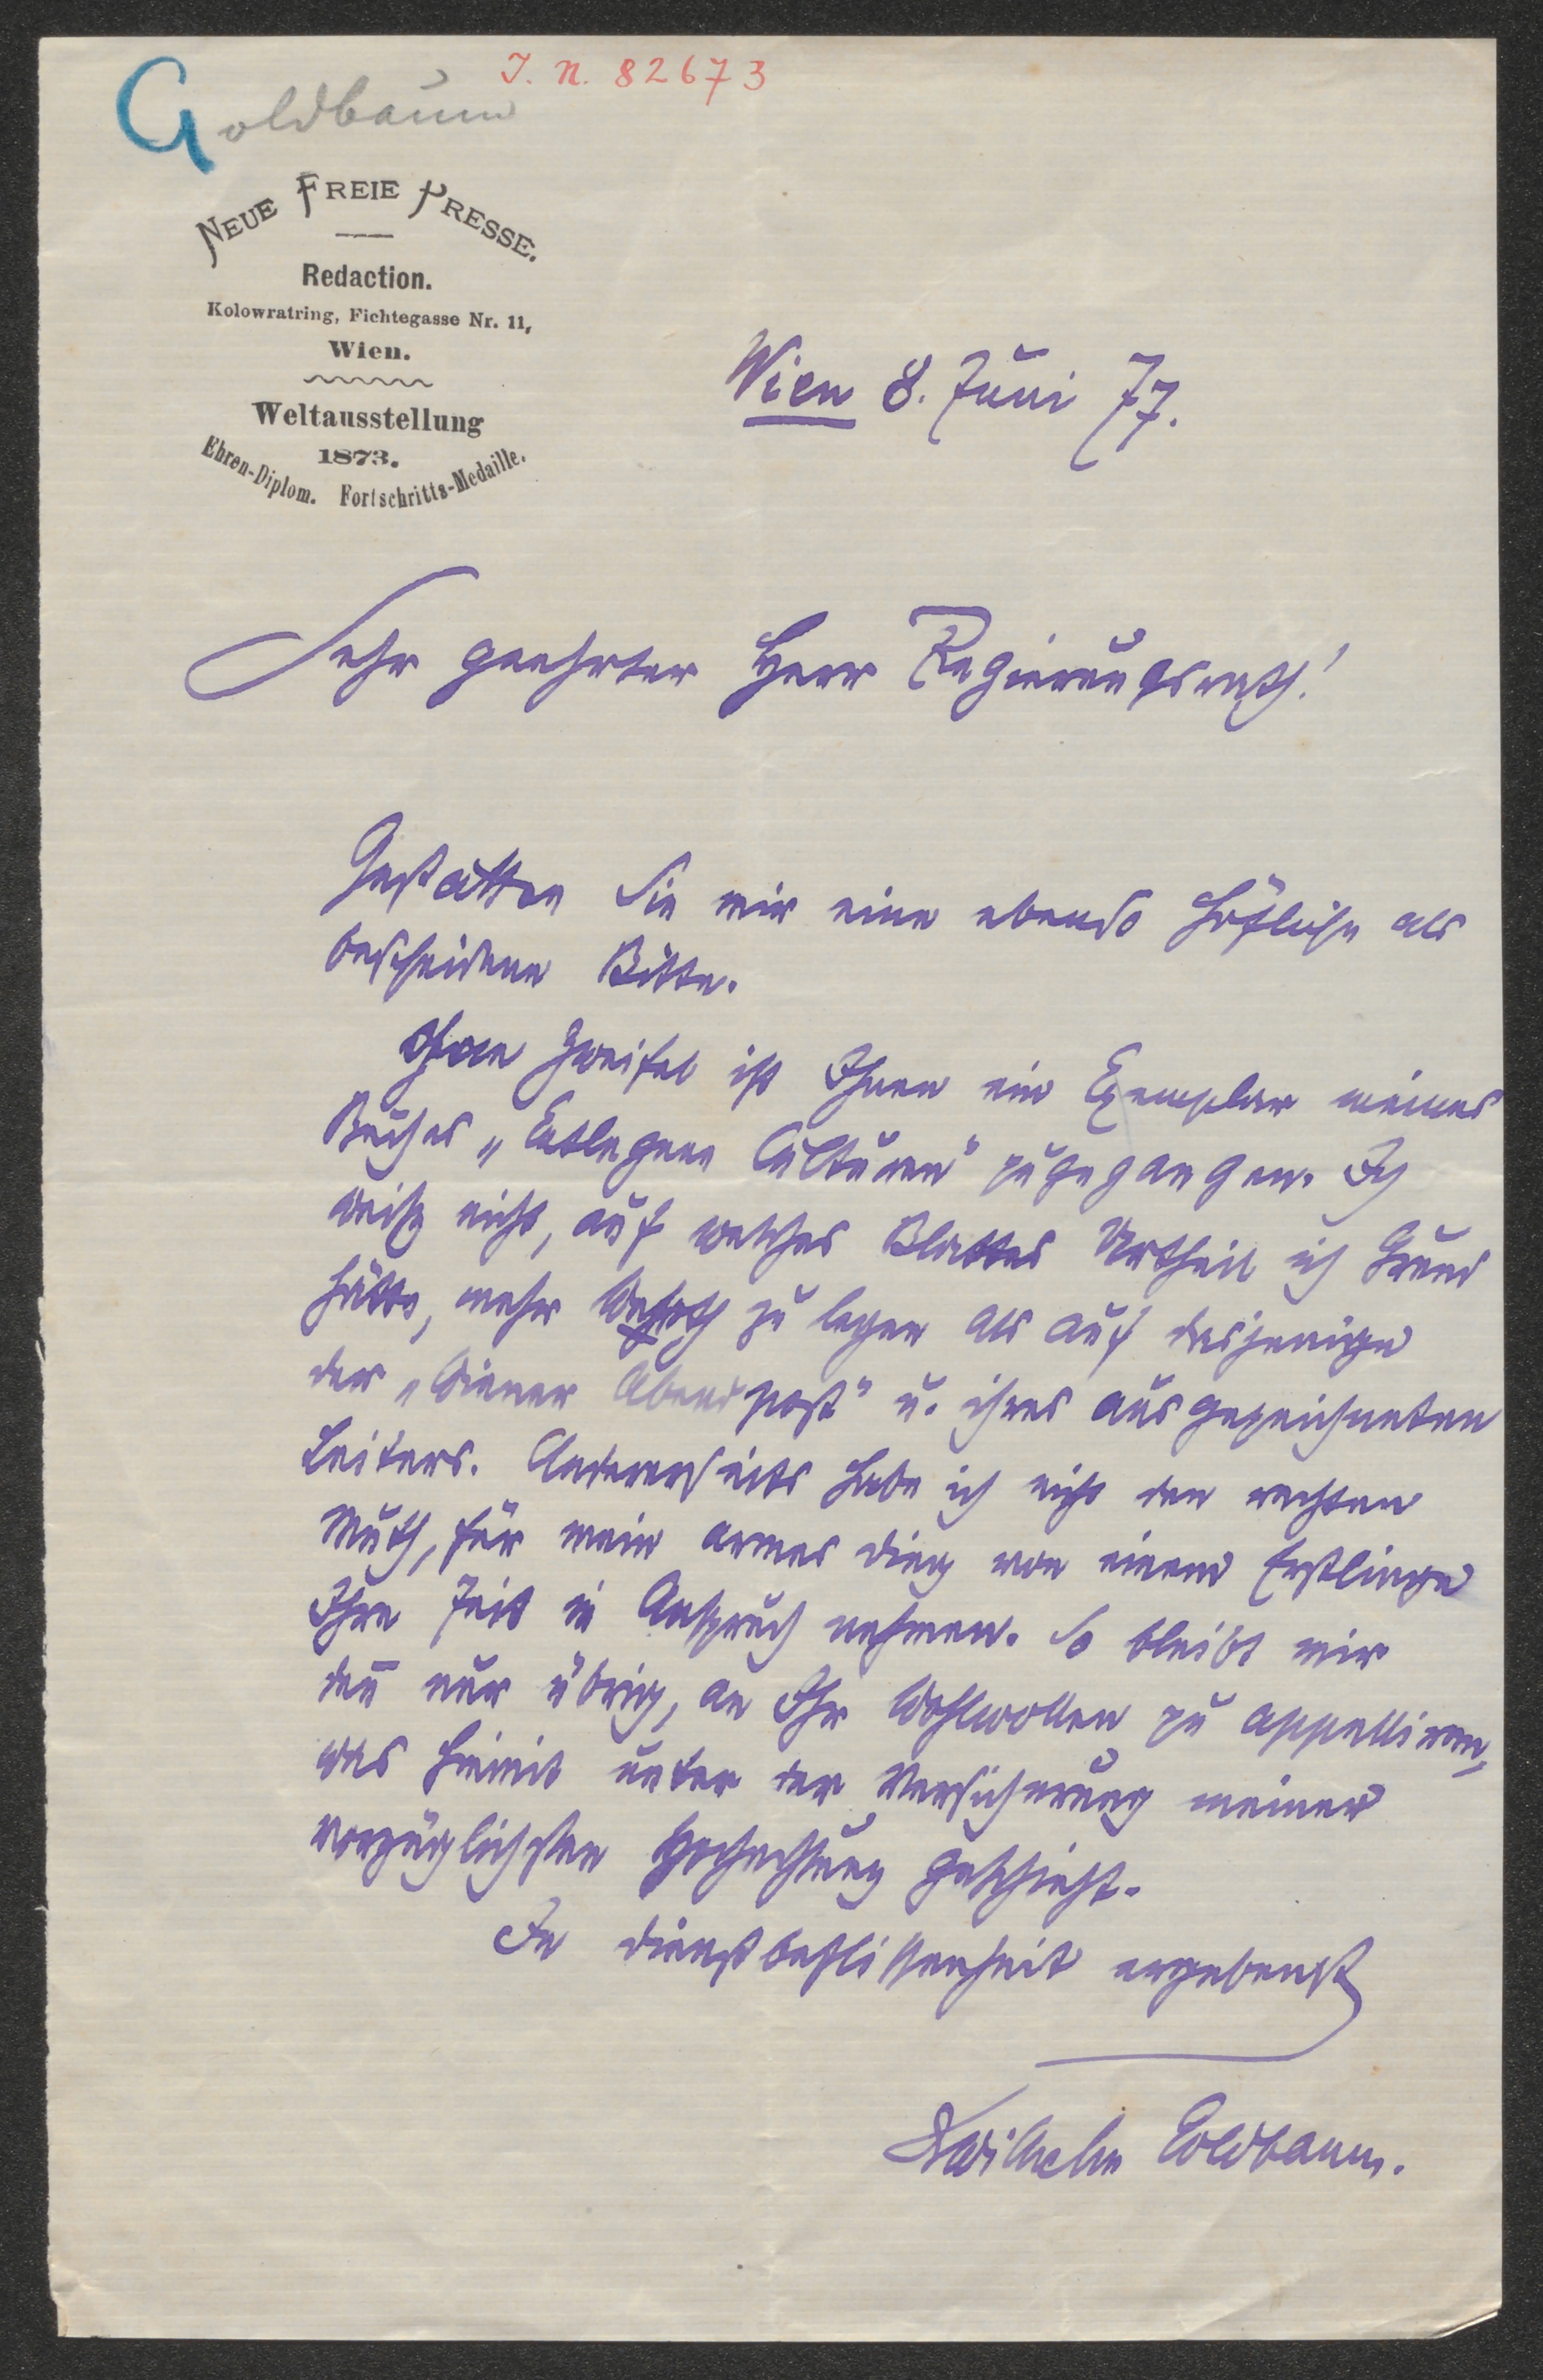 J. N. 82673
Goldbaum
NEUE FREIE PRESSE.
Redaction.
Kolowratring, Fichtegasse Nr. 11,
Wien.
Weltausstellung
1873.
Ehren-Diplom. Fortschritts-Medaille.
Wien 8. Juni 77.
Sehr geehrter Herr Regierungsrath!
Gestatten Sie mir eine ebenso höfliche als
bescheidene Bitte.
Ohne Zweifel ist Ihnen ein Exemplar meines
Buches „Entlegene Culturen" zugegangen. Ich
weiß nicht, auf welches Blattes Urtheil ich Grund
hätte, mehr Werth zu legen als auf dasjenige
der „Wiener Abendpost" u. ihres ausgezeichneten
Leiters. Andererseits habe ich nicht den rechten
Muth, für mein armes Ding von einem Erstlinge
Ihre Zeit in Anspruch nehmen. So bleibt mir
den̄ nur übrig, an Ihr Wohlwollen zu appelliren,
was hiemit unter der Versicherung meiner
vorzüglichsten Hochachtung geschieht.
In Dienstbeflissenheit ergebenst
Wilhelm Goldbaum.